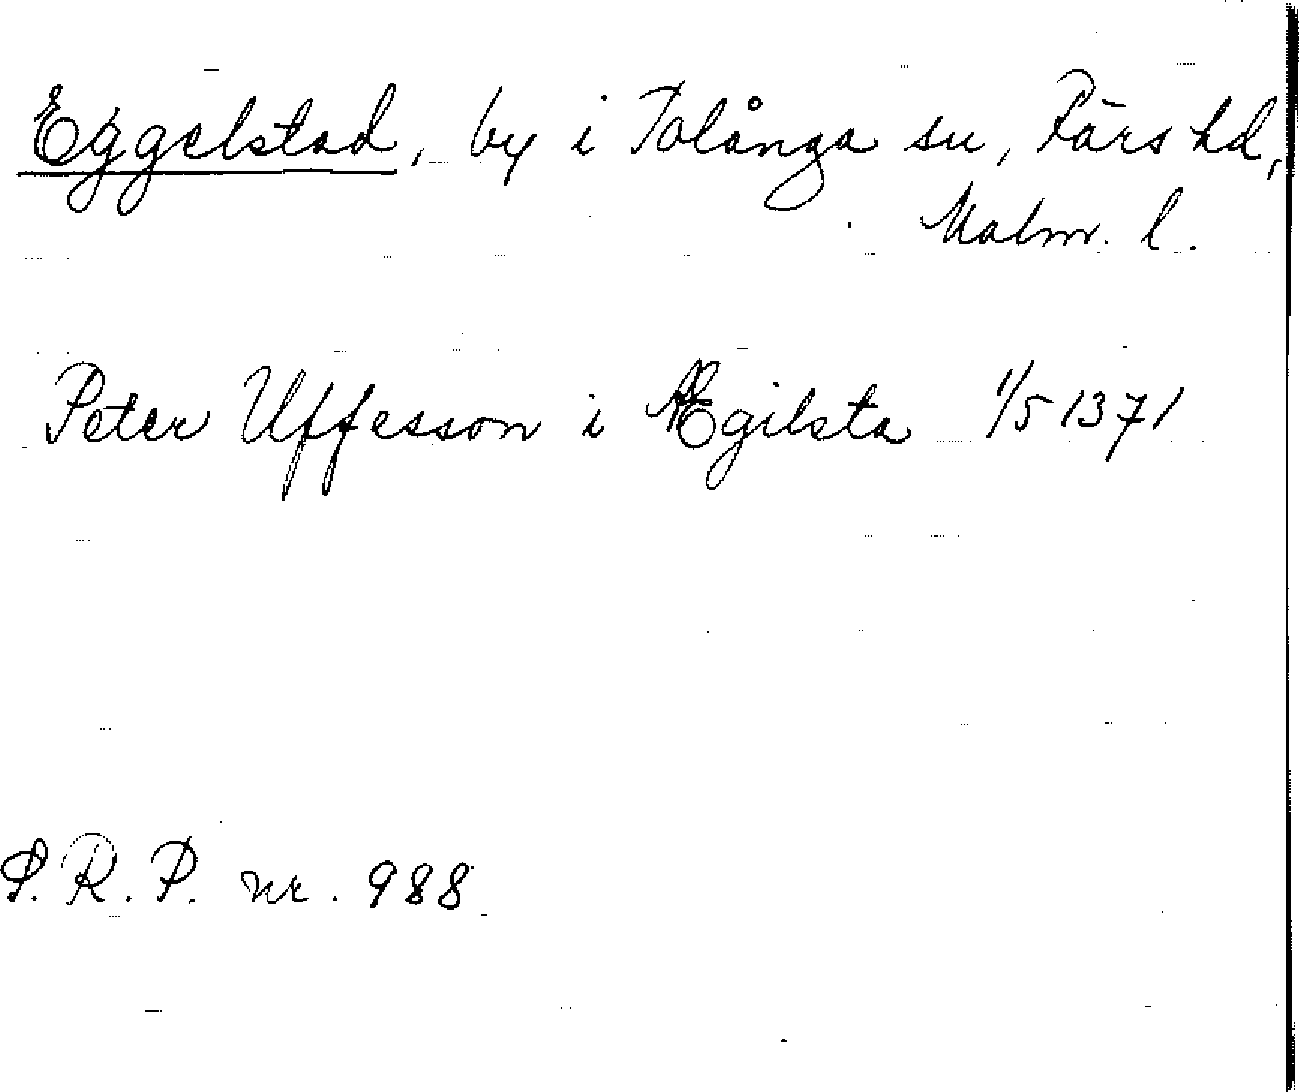 Eggelstad, by i Tolånga sn, Färs hd,
Malm. l.
Peter Uffesson i Ægilsta 1/5 1371
S.R.P. nr. 988